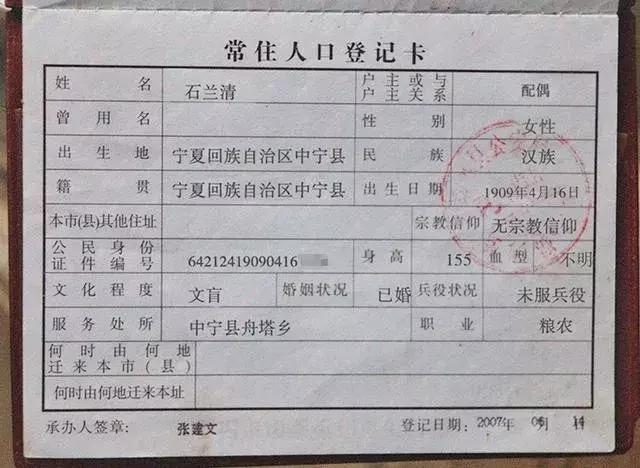 常住人口登记卡
姓名 石兰清 户主或与户主关系 配偶
曾用名 性别 女性
出生地 宁夏回族自治区中宁县 民族 汉族
籍贯 宁夏回族自治区中宁县 出生日期 1909年4月16日
本市(县)其他住址 宗教信仰 无宗教信仰
公民身份证件编号 64212419090416 身高 155 血型 不明
文化程度 文盲 婚姻状况 已婚 兵役状况 未服兵役
服务处所 中宁县舟塔乡 职业 粮农
何时由何地迁来本市(县)
何时由何地迁来本址
承办人签章： 张建文 登记日期：2007年 月 14日